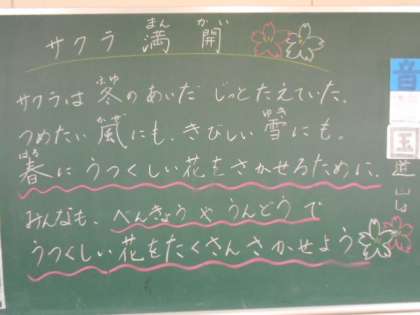 サクラ 満開
まん かい
サクラは 冬のあいだ じっとたえていた。
ふゆ
つめたい 風にも、きびしい 雪にも。
かぜ ゆき
春に うつくしい花をさかせるために。
はる
みんなも、べんきょうや うんどうで
うつくしい 花をたくさん さかせよう
音
国
道
山